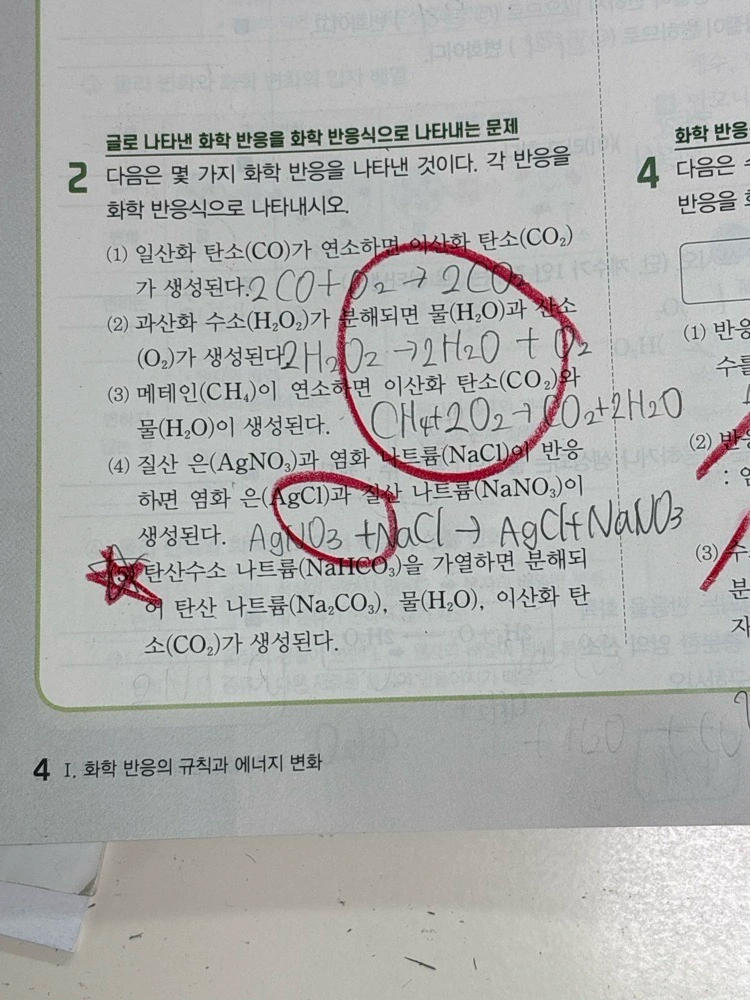 글로 나타낸 화학 반응을 화학 반응식으로 나타내는 문제
2 다음은 몇 가지 화학 반응을 나타낸 것이다. 각 반응을
화학 반응식으로 나타내시오.
(1) 일산화 탄소(CO)가 연소하면 이산화 탄소(CO₂)
가 생성된다. 2CO+O₂→2CO₂
(2) 과산화 수소(H₂O₂)가 분해되면 물(H₂O)과 산소
(O₂)가 생성된다. 2H₂O₂→2H₂O+O₂
(3) 메테인(CH₄)이 연소하면 이산화 탄소(CO₂)와
물(H₂O)이 생성된다. CH₄+2O₂→CO₂+2H₂O
(4) 질산 은(AgNO₃)과 염화 나트륨(NaCl)이 반응
하면 염화 은(AgCl)과 질산 나트륨(NaNO₃)이
생성된다. AgNO₃+NaCl→AgCl+NaNO₃
(5) 탄산수소 나트륨(NaHCO₃)을 가열하면 분해되
어 탄산 나트륨(Na₂CO₃), 물(H₂O), 이산화 탄
소(CO₂)가 생성된다.
4 Ⅰ. 화학 반응의 규칙과 에너지 변화
화학 반응
4 다음은
반응을
(1) 반응
수를
(2) 반응
(3)